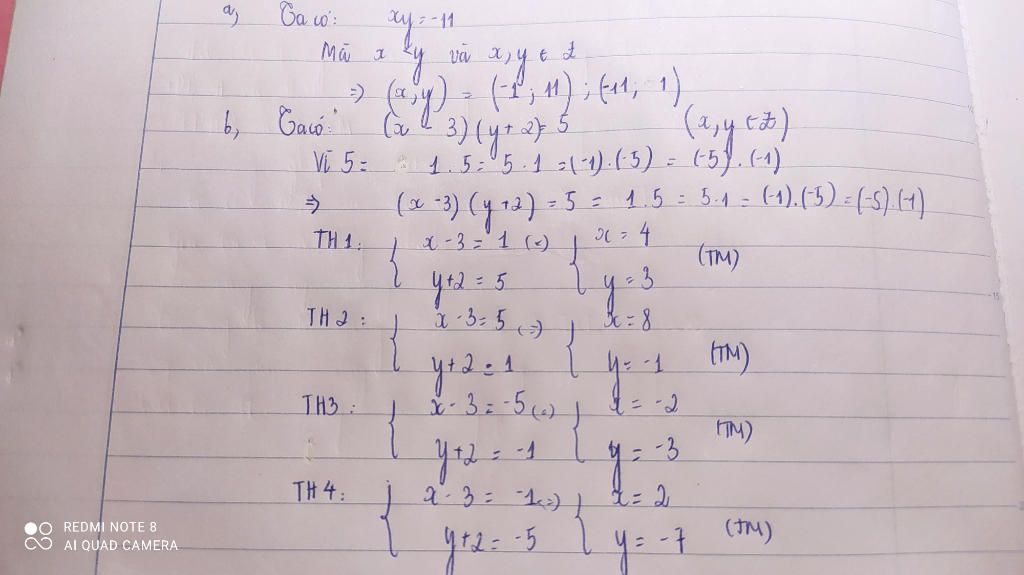 a, Ta có: xy = -11
Mà x < y và x, y ∈ Z
=> (x,y) = (-1; 11); (-11; 1)
b, Ta có: (x - 3)(y+2)= 5 (x, y ∈ Z)
Vì 5 = 1.5 = 5.1 = (-1).(-5) = (-5).(-1)
=> (x-3)(y+2) = 5 = 1.5 = 5.1 = (-1).(-5) = (-5).(-1)
TH1: { x-3 = 1 (=) { x = 4
y+2 = 5 y = 3 (TM)
TH2: { x-3=5 (=) { x=8
y+2 = 1 y = -1 (TM)
TH3: { x-3 = -5 (=) { x = -2
y+2 = -1 y = -3 (TM)
TH4: { x-3 = -1 (=) { x = 2
y+2 = -5 y = -7 (TM)
REDMI NOTE 8
AI QUAD CAMERA